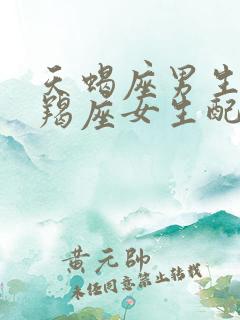 天蝎座男生
羯座女生配
黄元帅
未经同意禁止转载